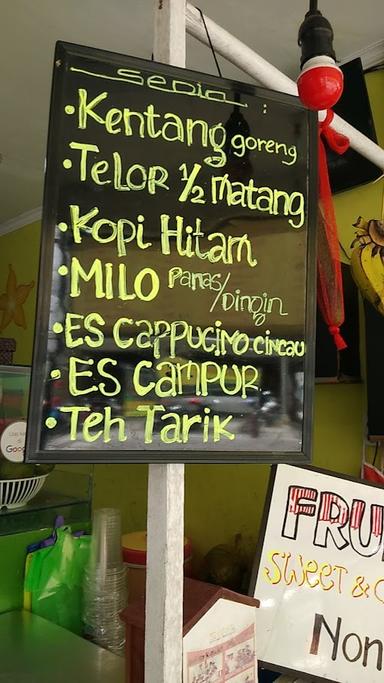 sedia :
• Kentang goreng
• Telor 1/2 matang
• Kopi Hitam
• MILO Panas/Dingin
• ES CAPPUCiNO cincau
• ES CAMPUR
• Teh Tarik
Goo
FRU
SWEET &
Non